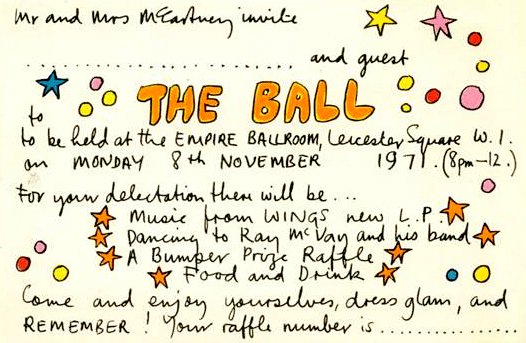 Mr and Mrs McCartney invite
.............................. and guest
to THE BALL
to be held at the EMPIRE BALLROOM, Leicester Square W.1.
on MONDAY 8th NOVEMBER 1971. (8pm-12.)
For your delectation there will be...
Music from WINGS new L.P.
Dancing to Ray McVay and his band
A Bumper Prize Raffle
Food and Drink
Come and enjoy yourselves, dress glam, and
REMEMBER! Your raffle number is ...............